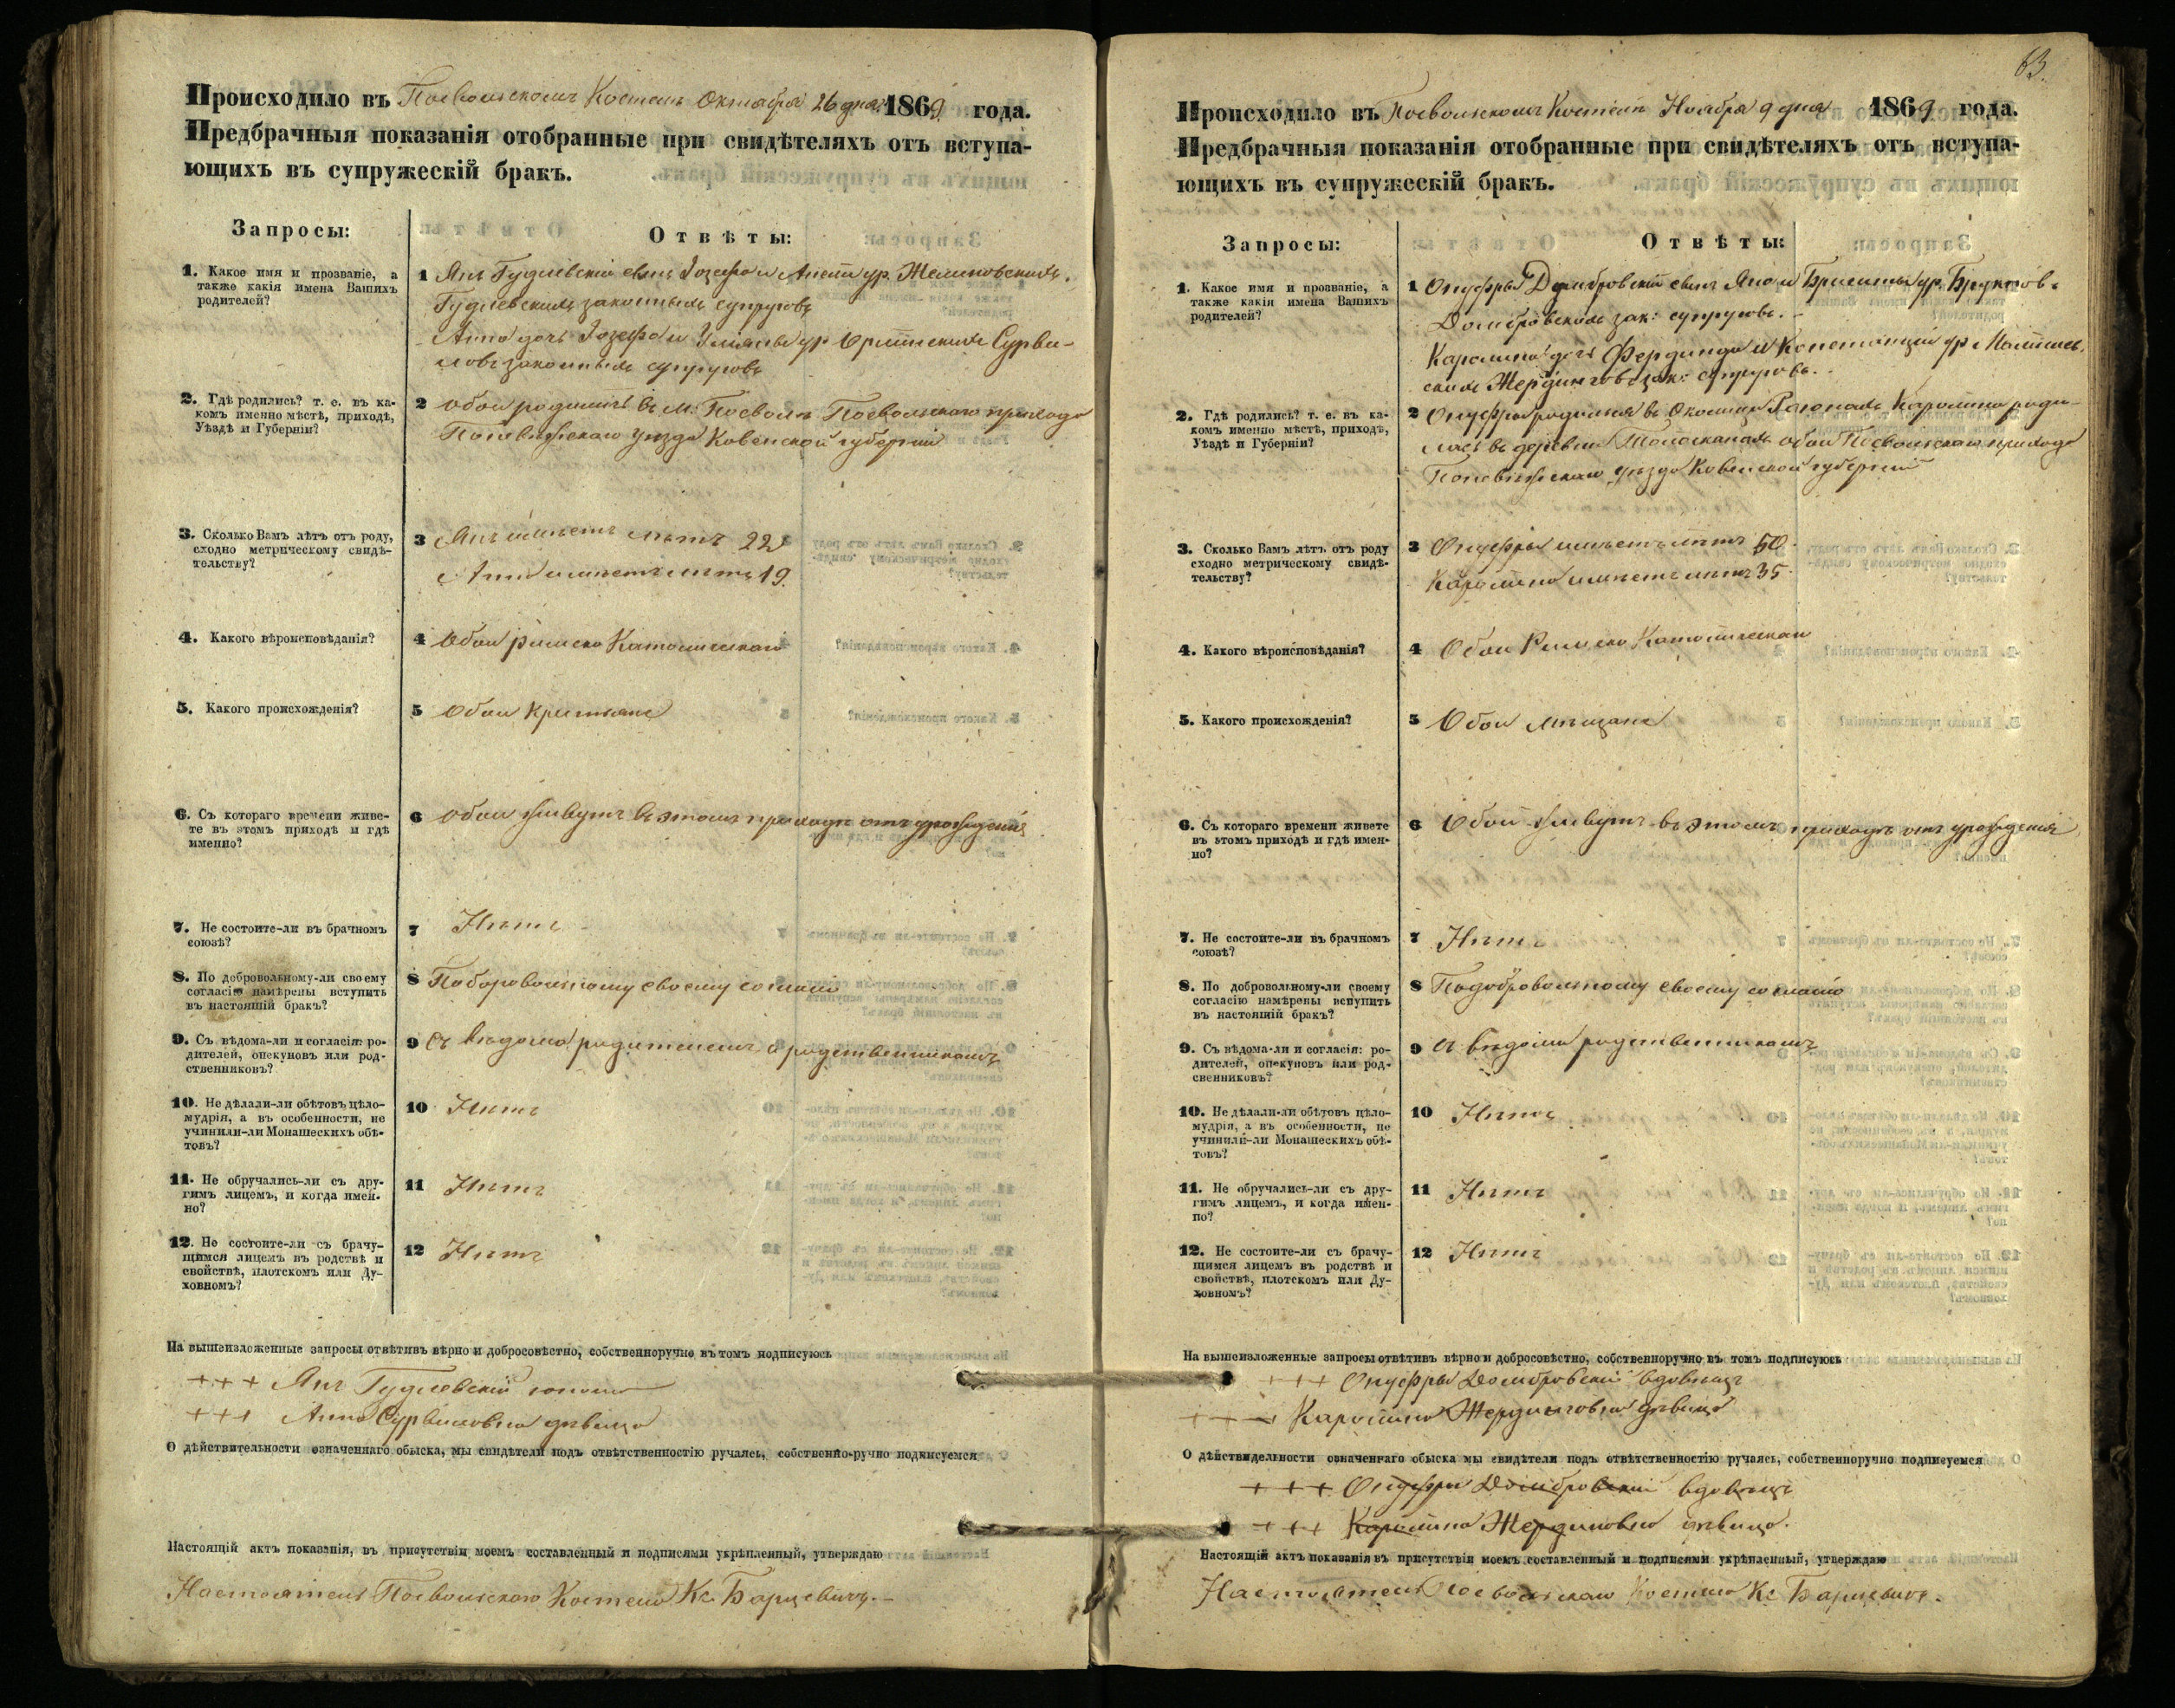 Происходило въ Посвольскомъ Костелѣ Октября 26 дня 1869 года.
Предбрачныя показанія отобранные при свидѣтеляхъ отъ вступа-
ющихъ въ супружескій бракъ.
Запросы:
Отвѣты:
1. Какое имя и прозваніе, а
также какія имена Вашихъ
родителей?
1 Янъ Гудлевскій сынъ Іозефа и ур. 
Гудлевскихъ законныхъ супруговъ
Анна дочь Іозефа и ур Сурви-
ловъ законныхъ супруговъ
2. Гдѣ родились? т. е. въ ка-
комъ именно мѣстѣ, приходѣ,
Уѣздѣ и Губерніи?
2 обои родились въ М. Посволѣ Посвольскаго прихода
Поневѣжскаго уѣзда Ковенской губерніи
3. Сколько Вамъ лѣтъ отъ роду,
сходно метрическому свидѣ-
тельству?
3 Янъ имѣетъ лѣтъ 22
Анна имѣетъ лѣтъ 19.
4. Какого вѣроисповѣданія?
4 Обои римско Католическаго
5. Какого происхожденія?
5 Обои крестьяне
6. Съ котораго времени живе-
те въ этомъ приходѣ и гдѣ
именно?
6 обои живутъ въ этомъ приходѣ отъ урожденія
7. Не состоите-ли въ брачномъ
союзѣ?
7 Нѣтъ
8. По добровольному-ли своему
согласію намѣрены вступить
въ настоящій бракъ?
8 По добровольному своему согласію
9. Съ вѣдома-ли и согласія: ро-
дителей, опекуновъ или род-
ственниковъ?
9 Съ вѣдома родителемъ и родственникамъ
10. Не дѣлали-ли обѣтовъ цѣло-
мудрія, а въ особенности, не
учинили-ли Монашескихъ обѣ-
товъ?
10 Нѣтъ
11. Не обручались-ли съ дру-
гимъ лицемъ, и когда имен-
но?
11 Нѣтъ
12. Не состоите-ли съ брачу-
щимся лицемъ въ родствѣ и
свойствѣ, плотскомъ или Ду-
ховномъ?
12 Нѣтъ
На вышеизложенные запросы отвѣтивъ вѣрно и добросовѣстно, собственноручно въ томъ подписуюсь
+++ Янъ Гудлевскій юноша
+++ Анна Сурвиловна дѣвица
О дѣйствительности означеннаго обыска, мы свидѣтели подъ отвѣтственностію ручаясь, собственно-ручно подписуемся
Настоящій актъ показанія, въ присутствіи моемъ составленный и подписями укрѣпленный, утверждаю
Настоятель Посвольскаго Костела Кс. Барцевичъ.
63.
Происходило въ Посвольскомъ Костелѣ Ноября 9 дня 1869 года.
Предбрачныя показанія отобранные при свидѣтеляхъ отъ вступа-
ющихъ въ супружескій бракъ.
Запросы:
Отвѣты:
1. Какое имя и прозваніе, а
также какія имена Вашихъ
родителей?
1 Онуфры Домбровскій сынъ Яна и Бригиты ур. 
Домбровскихъ зак: супруговъ.
Каролина дочь Фердинда и Констанціи ур. 
скихъ Жердинговъ зак: супруговъ.
2. Гдѣ родились? т. е. въ ка-
комъ именно мѣстѣ, приходѣ,
Уѣздѣ и Губерніи?
2 Онуфры родился въ Околицѣ Каролина роди-
лась въ деревни обои Посвольскаго прихода
Поневѣжскаго уѣзда Ковенской губерніи
3. Сколько Вамъ лѣтъ отъ роду
сходно метрическому свидѣ-
тельству?
3 Онуфры имѣетъ лѣтъ 50.
Каролина имѣетъ лѣтъ 35.
4. Какого вѣроисповѣданія?
4 Обои Римско Католическаго
5. Какого происхожденія?
5 Обои мѣщане
6. Съ котораго времени живете
въ этомъ приходѣ и гдѣ имен-
но?
6 Обои живутъ въ этомъ приходѣ отъ урожденія
7. Не состоите-ли въ брачномъ
союзѣ?
7 Нѣтъ
8. По добровольному-ли своему
согласію намѣрены вступить
въ настоящій бракъ?
8 По добровольному своему согласію
9. Съ вѣдома-ли и согласія: ро-
дителей, опекуновъ или род-
свенниковъ?
9 Съ вѣдома родственникамъ
10. Не дѣлали-ли обѣтовъ цѣло-
мудрія, а въ особенности, не
учинили-ли Монашескихъ обѣ-
товъ?
10 Нѣтъ
11. Не обручались-ли съ дру-
гимъ лицемъ, и когда имен-
но?
11 Нѣтъ
12. Не состоите-ли съ брачу-
щимся лицемъ въ родствѣ и
свойствѣ, плотскомъ или Ду-
ховномъ?
12 Нѣтъ
На вышеизложенные запросы отвѣтивъ вѣрно и добросовѣстно, собственноручно въ томъ подписуюсь
+++ Онуфры Домбровскій вдовецъ
+++ Каролина Жердинговна дѣвица
О дѣйствидельности означеннаго обыска мы свидѣтели подъ отвѣтственностію ручаясь, собственноручно подписуемся
+++ Онуфры Домбровскій вдовецъ
+++ Каролина Жердиновна дѣвица.
Настоящій актъ показанія въ присутствіи моемъ составленный и подписями укрѣпленный, утверждаю
Настоятель Посвольскаго Костела Кс Барцевичъ.